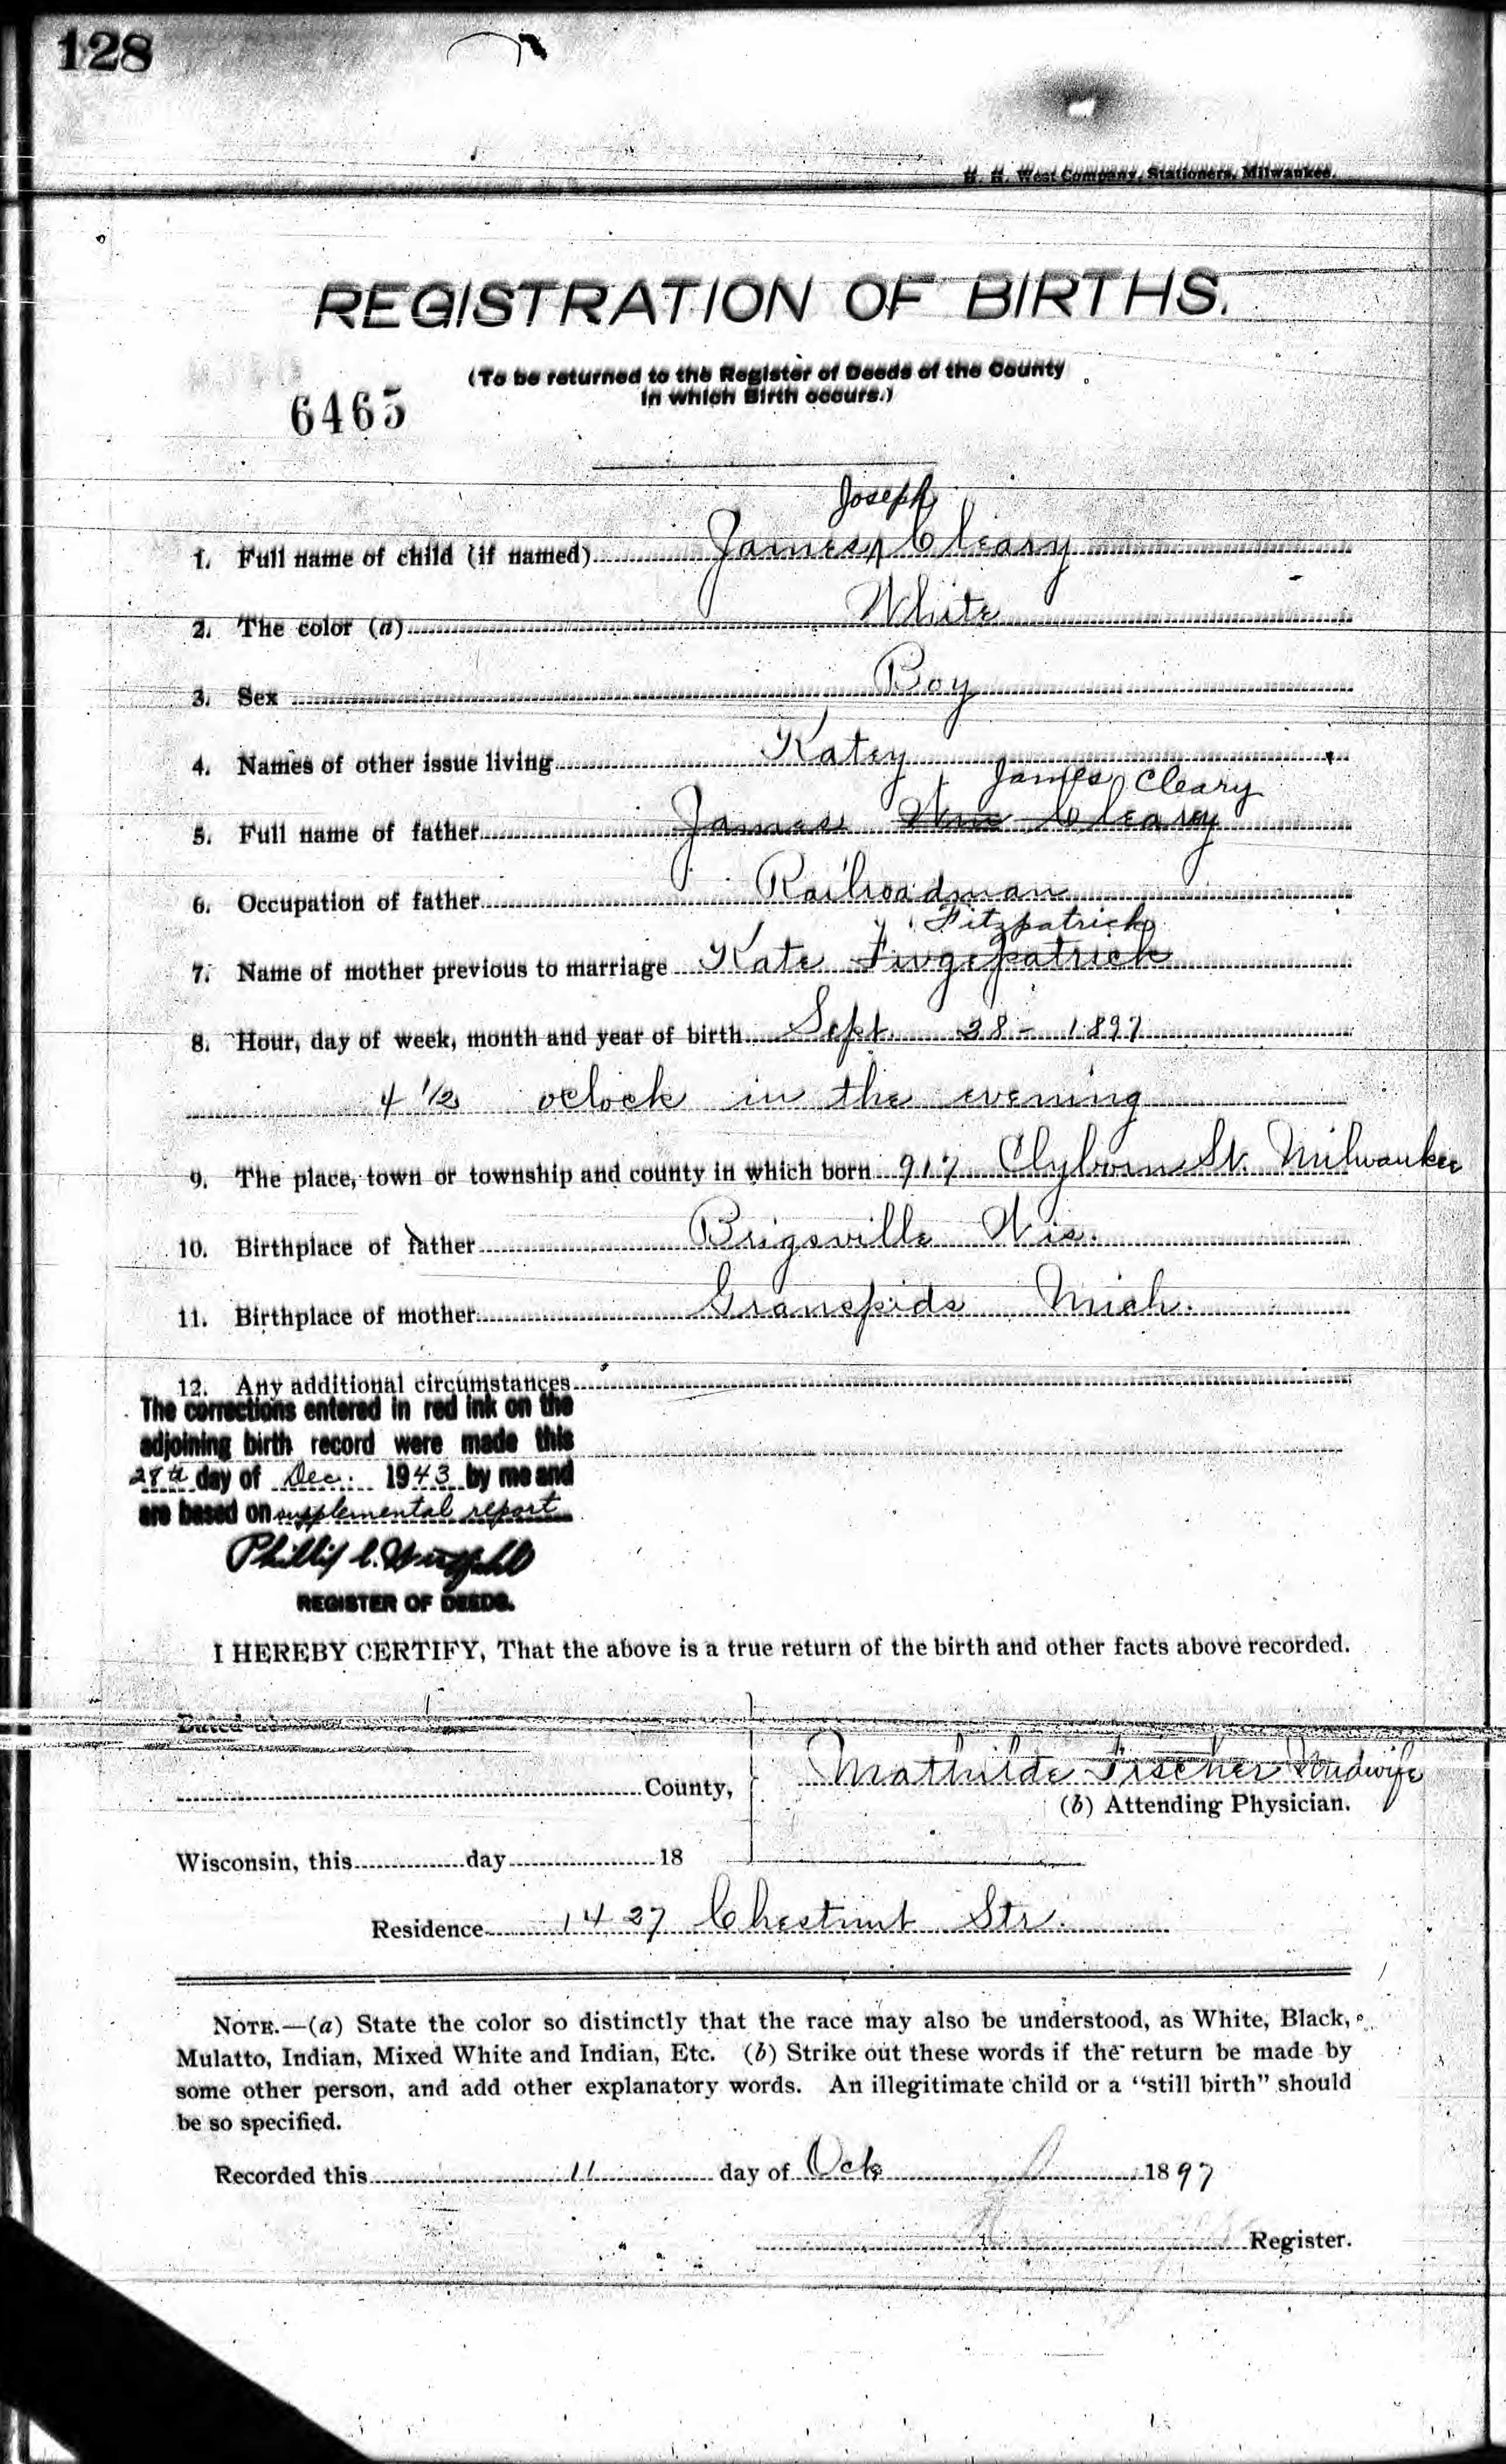 128
H. H. West Company, Stationers, Milwaukee.
REGISTRATION OF BIRTHS.
(To be returned to the Register of Deeds of the County
in which Birth occurs.)
6465
Joseph
1. Full name of child (if named) James ^ Cleary
2. The color (a) White
3. Sex Boy
4. Names of other issue living Katey
James Cleary
5. Full name of father James Wm Cleary
6. Occupation of father Railroadman
Fitzpatrick
7. Name of mother previous to marriage Kate
8. Hour, day of week, month and year of birth Sept 28 - 1897
4 1/2 oclock in the evening
9. The place, town or township and county in which born 917 Clyborn St. Milwaukee
10. Birthplace of father Brigsville Wis.
11. Birthplace of mother Granepids Mich.
12. Any additional circumstances
The corrections entered in red ink on the
adjoining birth record were made this
28th day of Dec. 1943 by me and
are based on supplemental report
Phillip C.
REGISTER OF DEEDS.
I HEREBY CERTIFY, That the above is a true return of the birth and other facts above recorded.
Dated at
Mathilde Fischer Midwife
County,
(b) Attending Physician.
Wisconsin, this day 18
Residence 1427 Chestnut Str.
NOTE.—(a) State the color so distinctly that the race may also be understood, as White, Black,
Mulatto, Indian, Mixed White and Indian, Etc. (b) Strike out these words if the return be made by
some other person, and add other explanatory words. An illegitimate child or a "still birth" should
be so specified.
Recorded this 11 day of Oct 1897
Register.